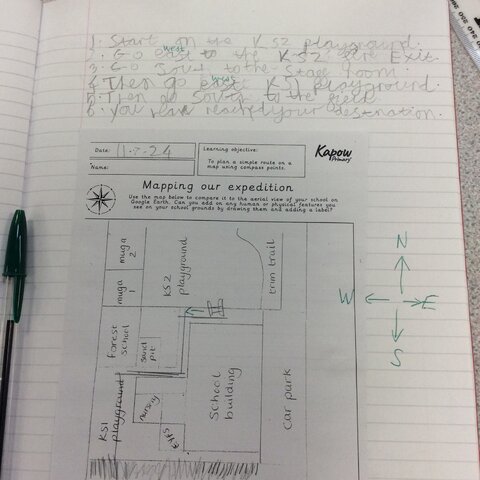 1. Start on the KS2 playground.
west
2. Go east to the KS2 fire Exit.
3. Go South to the Stage room.
west
4. Then go east KS1 playground.
5. Then go South to the field
6. you have reached your destination.
Date: 11.7.24
Name:
Learning objective:
To plan a simple route on a
map using compass points.
Kapow
Primary
Mapping our expedition
Use the map below to compare it to the aerial view of your school on
Google Earth. Can you add on any human or physical features you
see on your school grounds by drawing them and adding a label?
muga
2
muga
1
KS2
playground
trim trail
forest
school
sand
pit
KS1
playground
nursery
EYFS
School
building
Car park
N
W
E
S